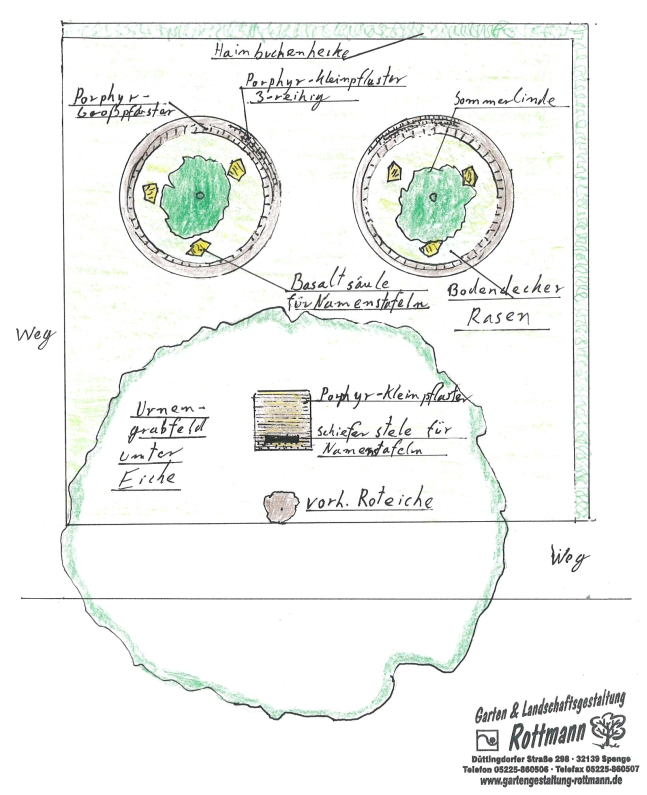 Hainbuchenhecke
Porphyr-
Großpflaster
Porphyr-Kleinpflaster
3-reihig
Sommerlinde
Basaltsäule
für Namenstafeln
Bodendecker
Rasen
Weg
Urnen-
grabfeld
unter
Eiche
Porphyr-Kleinpflaster
schiefer stele für
Namenstafeln
vorh. Roteiche
Weg
Garten & Landschaftsgestaltung
Rottmann
Düttingdorfer Straße 298 · 32139 Spenge
Telefon 05225-860506 · Telefax 05225-860507
www.gartengestaltung-rottmann.de